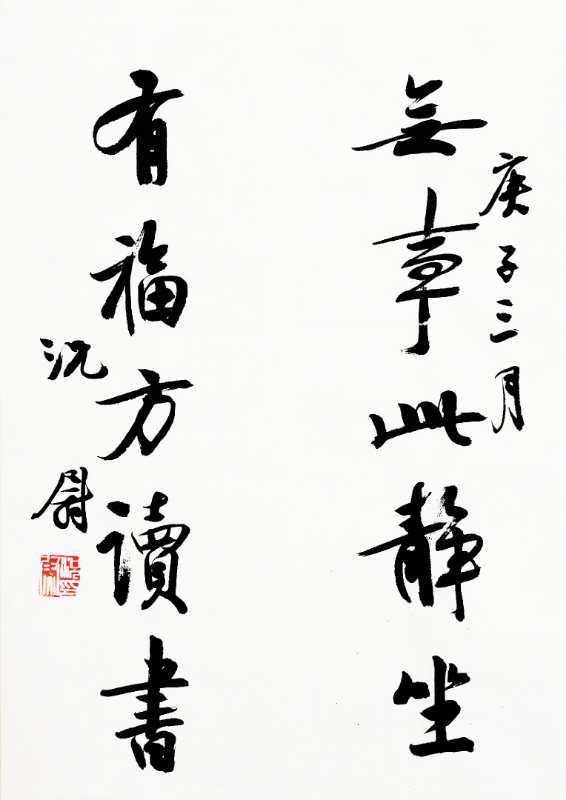 庚子三月
無事此静坐
有福方讀書
沈